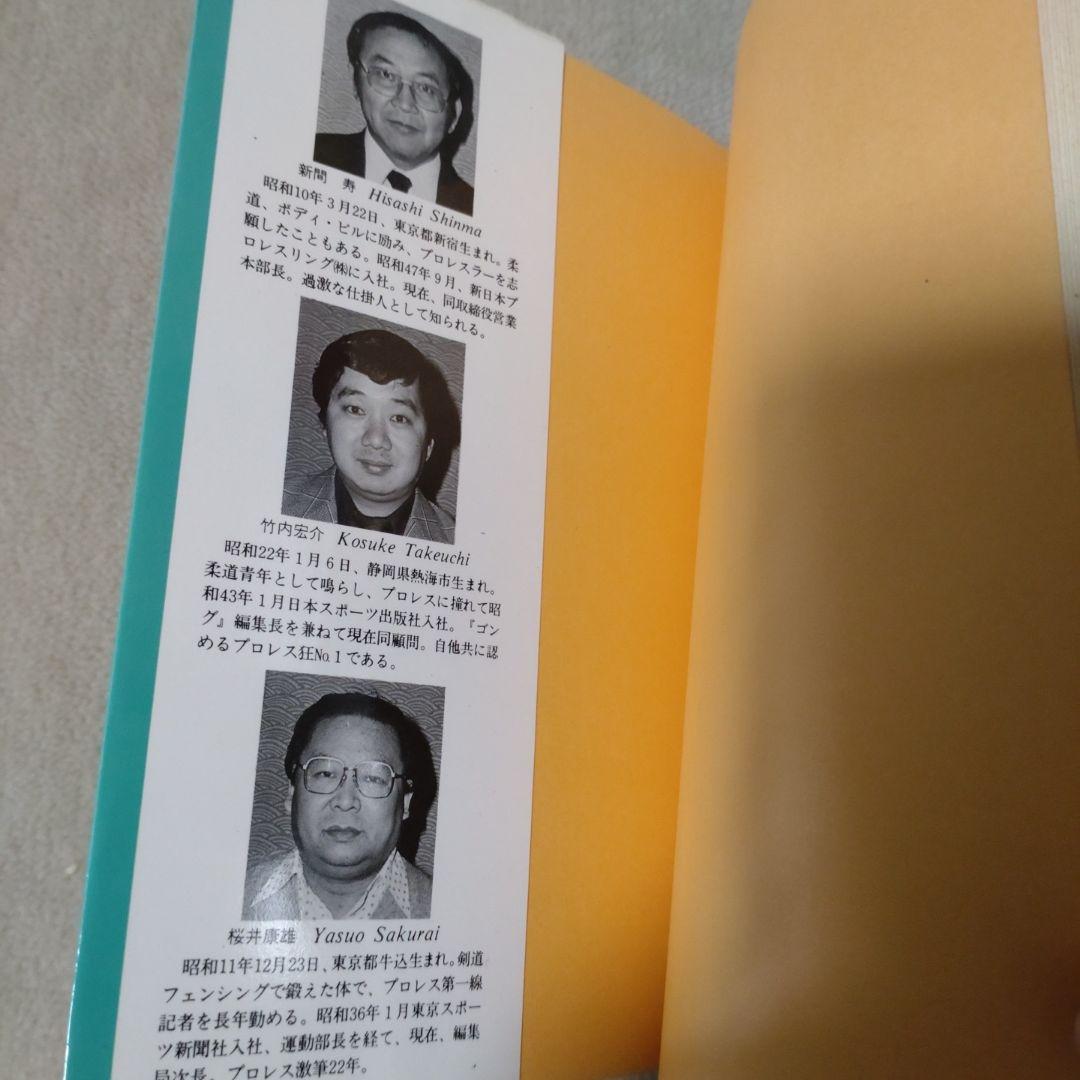 新間　寿　Hisashi Shinma
昭和10年3月22日、東京都新宿生まれ。柔
道、ボディ・ビルに励み、プロレスラーを志
願したこともある。昭和47年9月、新日本プ
ロレスリング㈱に入社。現在、同取締役営業
本部長。過激な仕掛人として知られる。
竹内宏介　Kosuke Takeuchi
昭和22年1月6日、静岡県熱海市生まれ。
柔道青年として鳴らし、プロレスに憧れて昭
和43年1月日本スポーツ出版社入社。『ゴン
グ』編集長を兼ねて現在同顧問。自他共に認
めるプロレス狂№1である。
桜井康雄　Yasuo Sakurai
昭和11年12月23日、東京都牛込生まれ。剣道
フェンシングで鍛えた体で、プロレス第一線
記者を長年勤める。昭和36年1月東京スポー
ツ新聞社入社、運動部長を経て、現在、編集
局次長。プロレス激筆22年。